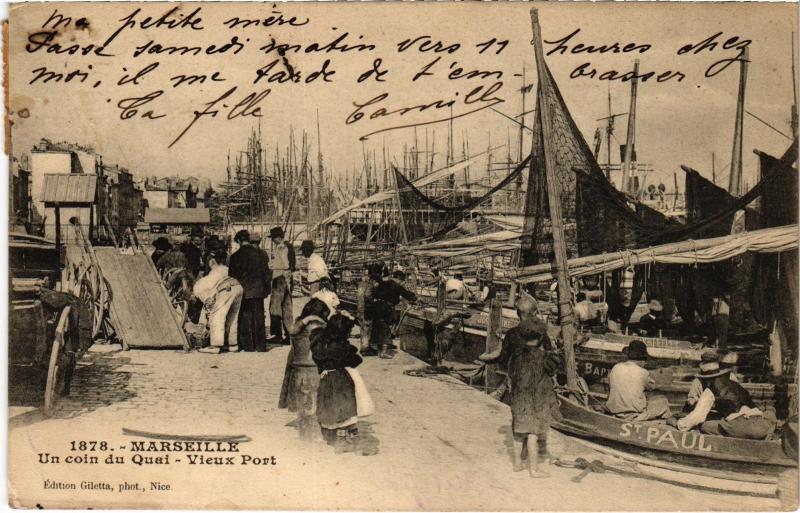 Ma petite mère
Passe samedi matin vers 11 heures chez
moi, il me tarde de t'em- brasser
Ta fille Camille
BAPT
ST PAUL
1878. - MARSEILLE
Un coin du Quai - Vieux Port
Édition Giletta, phot., Nice.